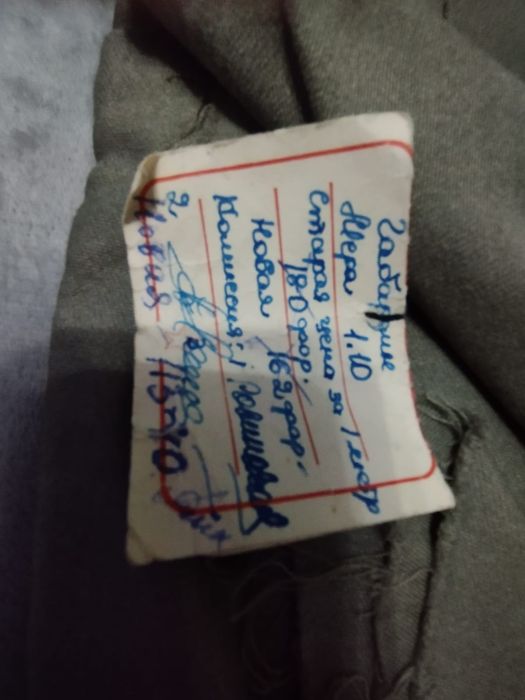 Габардин
Мера 1.10
Старая цена за 1 метр
180 фор.
Новая 162 фор.
Комиссия: 1.
2.
Новая 113-40